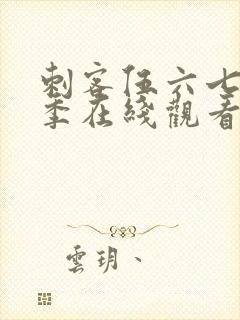 刺客伍六七
季在綫觀看
雲玥、